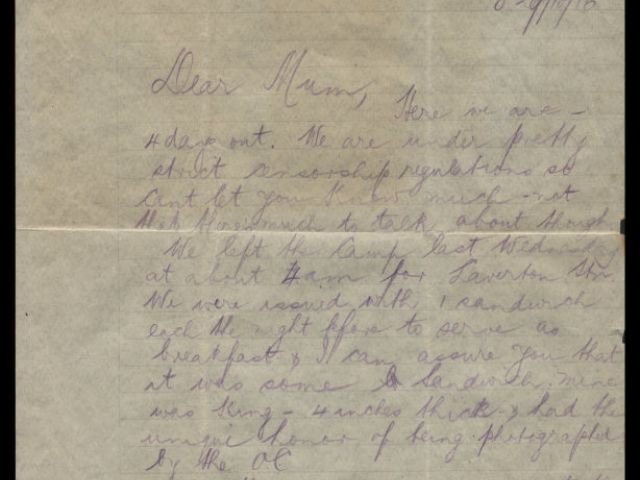 Dear Mum,
Here we are -
4 days out. We are under pretty
strict censorship regulations so
cant let you know much - not
that there is much to talk about though
We left the Camp last Wednesday
at about 4am for Laverton Stn.
We were issued with 1 sandwich
each the night before to serve as
breakfast & I can assure you that
it was some Sandwich. mine
was King - 4 inches thick & had the
unique honor of being photographed
by the OC